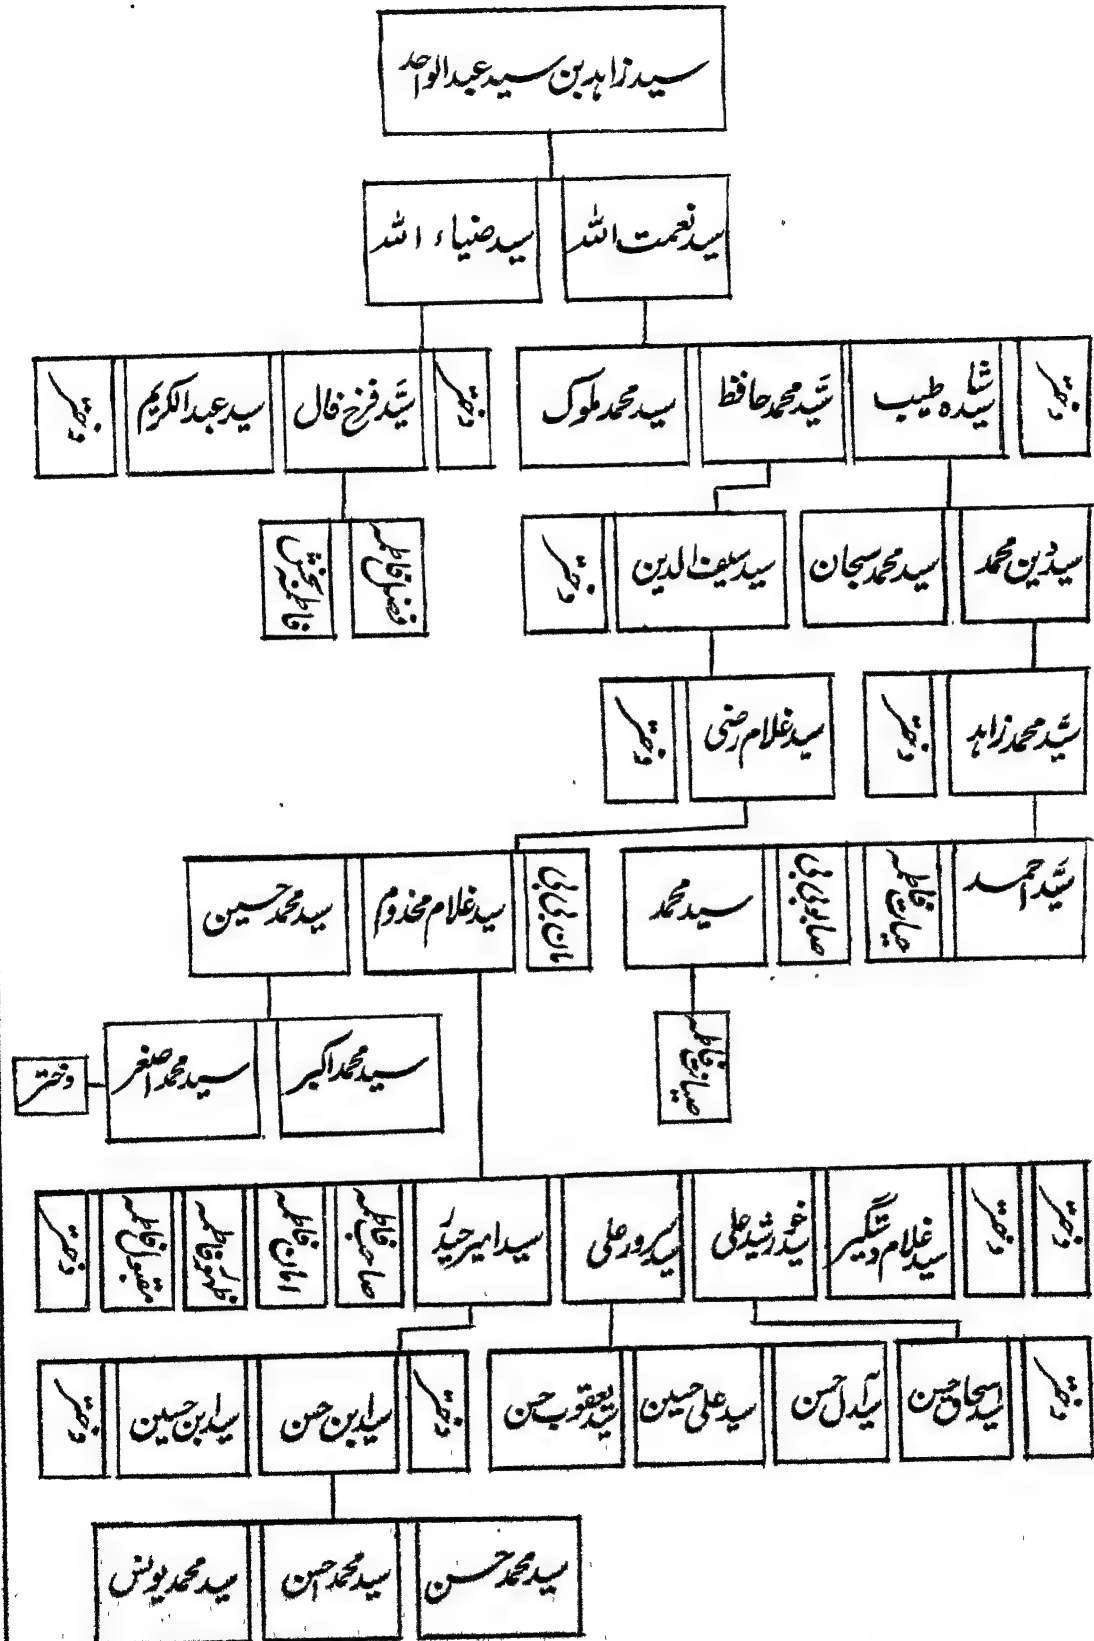 سید زاہد بن سید عبدالواحد
سید نعمت اللہ
سید ضیاء اللہ
دختر
سید شاہ طیب
سیّد محمد حافظ
سید محمد ملوک
دختر
سیّد فرخ فال
سید عبدالکریم
دختر
سید دین محمد
سید محمد سبحان
سید سیف الدین
دختر
فضل فاطمہ
فاطمہ بخش
سیّد محمد زاہد
دختر
سید غلام رضی
دختر
سیّد احمد
حیات فاطمہ
صابو بی بی
سید محمد
مان بی بی
سید غلام مخدوم
سید محمد حسین
صیانت فاطمہ
سید محمد اکبر
سید محمد اصغر
دختر
دختر
دختر
سید غلام دستگیر
سید خورشید علی
سید سرور علی
سید امیر حیدر
صاحب فاطمہ
امان فاطمہ
ظہور فاطمہ
مقبول فاطمہ
دختر
دختر
سید اسحاق حسن
سید آل حسن
سید علی حسین
سید یعقوب حسن
دختر
سید ابن حسن
سید ابن حسین
دختر
سید محمد حسن
سید محمد احسن
سید محمد یونس